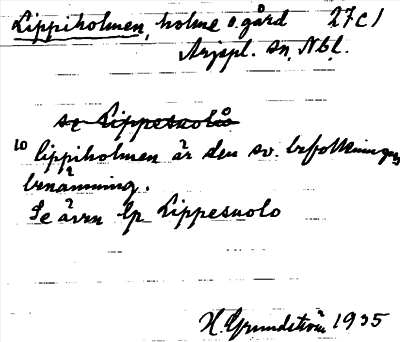 Lippiholmen, holme o. gård 27 C 1
Arjspl. sn, Nbl.
se Lippesuolå
10 lippiholmen är den sv. befolkningens
benämning.
Se även lp Lippesuolo
H. Grundström 1935